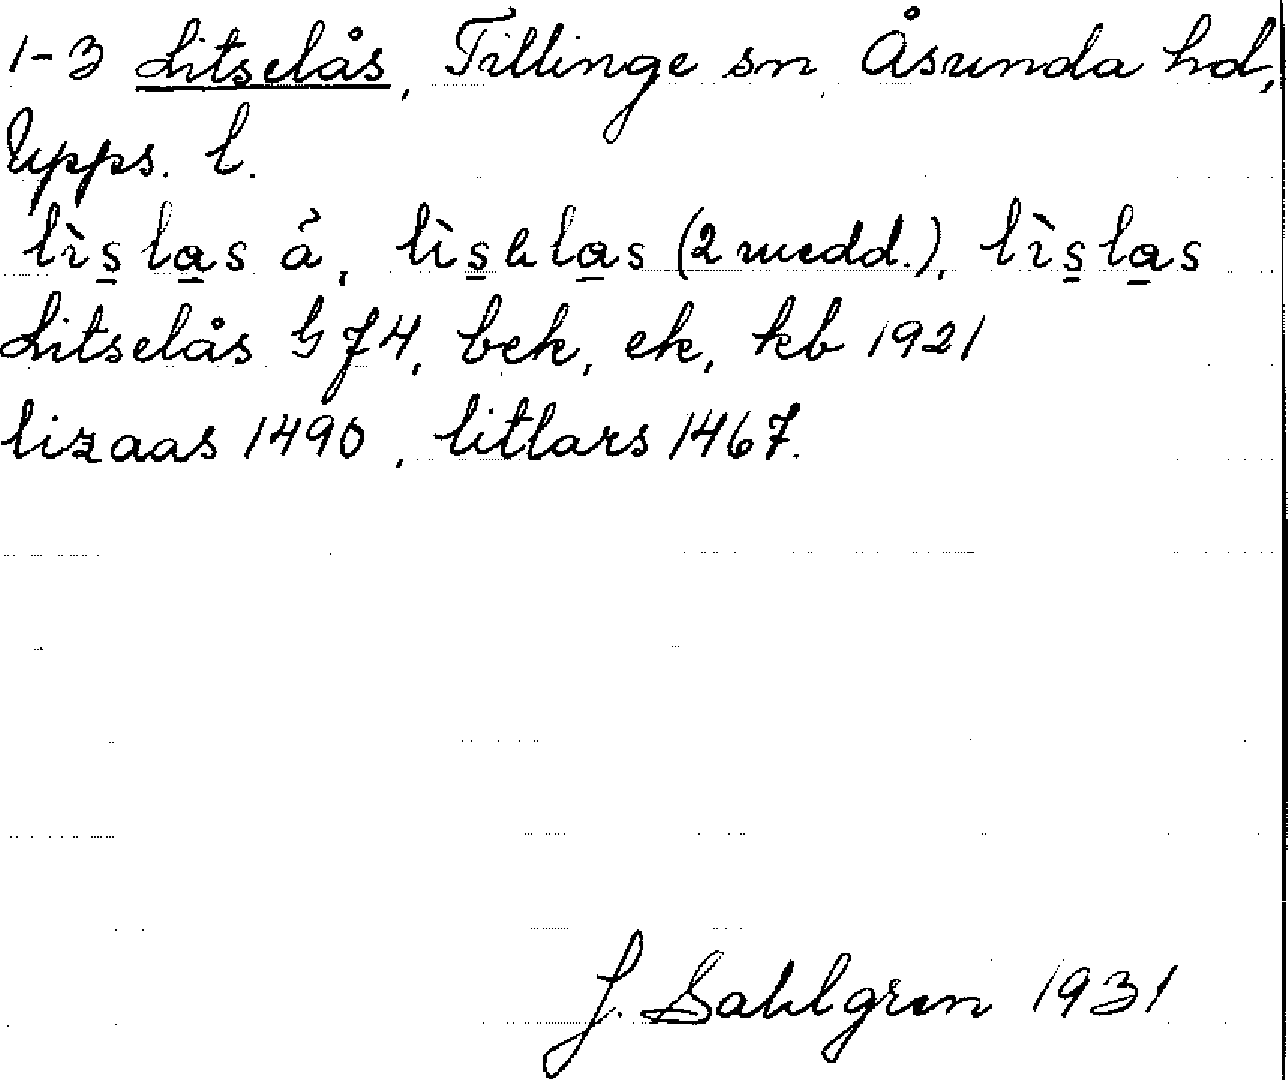 1-3 Litselås, Tillinge sn, Åsunda hd,
Upps. l.
lìs̲la̲s á, lìs̲lla̲s (2 medd.), lìs̲la̲s
Litselås G J4, bek, ek, kb 1921
lizaas 1490, litlars 1467.
J. Sahlgren 1931